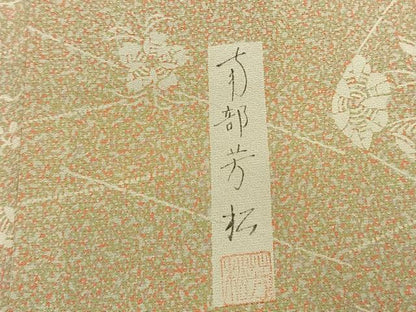 南部芳松